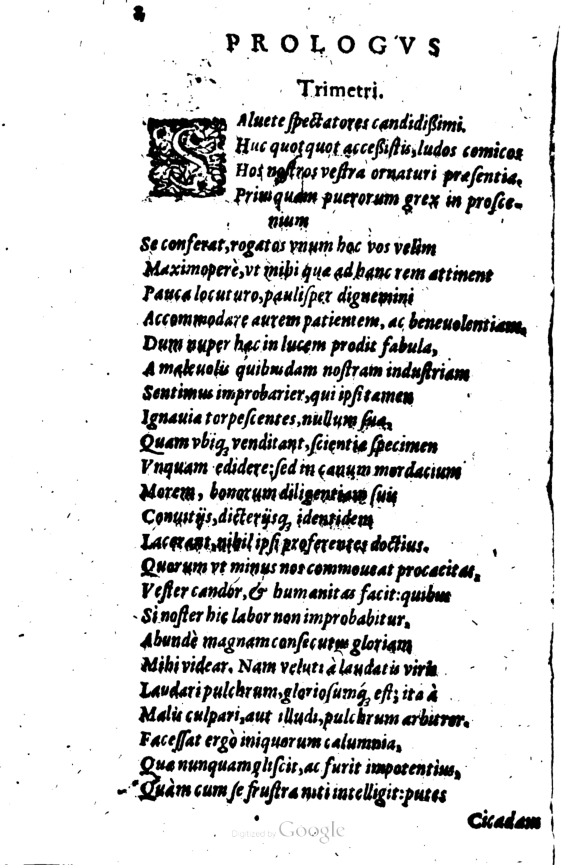 8
PROLOGVS
Trimetri.
SAluete ſpectatores candidiſſimi.
Huc quotquot acceſſiſtis, ludos comicos
Hos noſtros veſtra ornaturi præſentia,
Priuſquam puerorum grex in proſce-
nium
Se conferat, rogatos vnum hoc vos velim
Maximoperè, vt mihi quæ ad hanc rem attinent
Pauca locuturo, pauliſper dignemini
Accommodare aurem patientem, ac beneuolentiam,
Dum nuper hæc in lucem prodit fabula,
A maleuolis quibuſdam noſtram induſtriam
Sentimus improbarier, qui ipſi tamen
Ignauia torpeſcentes, nullum ſuæ,
Quam vbiq; venditant, ſcientiæ ſpecimen
Vnquam edidere; ſed in canum mordacium
Morem, bonorum diligentiam ſuis
Conuitijs, dicterijsq; identidem
Lacerant, nihil ipſi proferentes doctius.
Quorum vt minus nos commoueat procacitas,
Veſter candor, & humanitas facit: quibus
Si noſter hic labor non improbabitur,
Abundè magnam conſecutus gloriam
Mihi videar. Nam veluti à laudatis viris
Laudari pulchrum, glorioſumq́; eſt; ita à
Malis culpari, aut illudi, pulchrum arbitror.
Faceſſat ergò iniquorum calumnia,
Quæ nunquam gliſcit, ac furit impotentius,
Quàm cum ſe fruſtra niti intelligit: putes
Cicadam
Digitized by Google